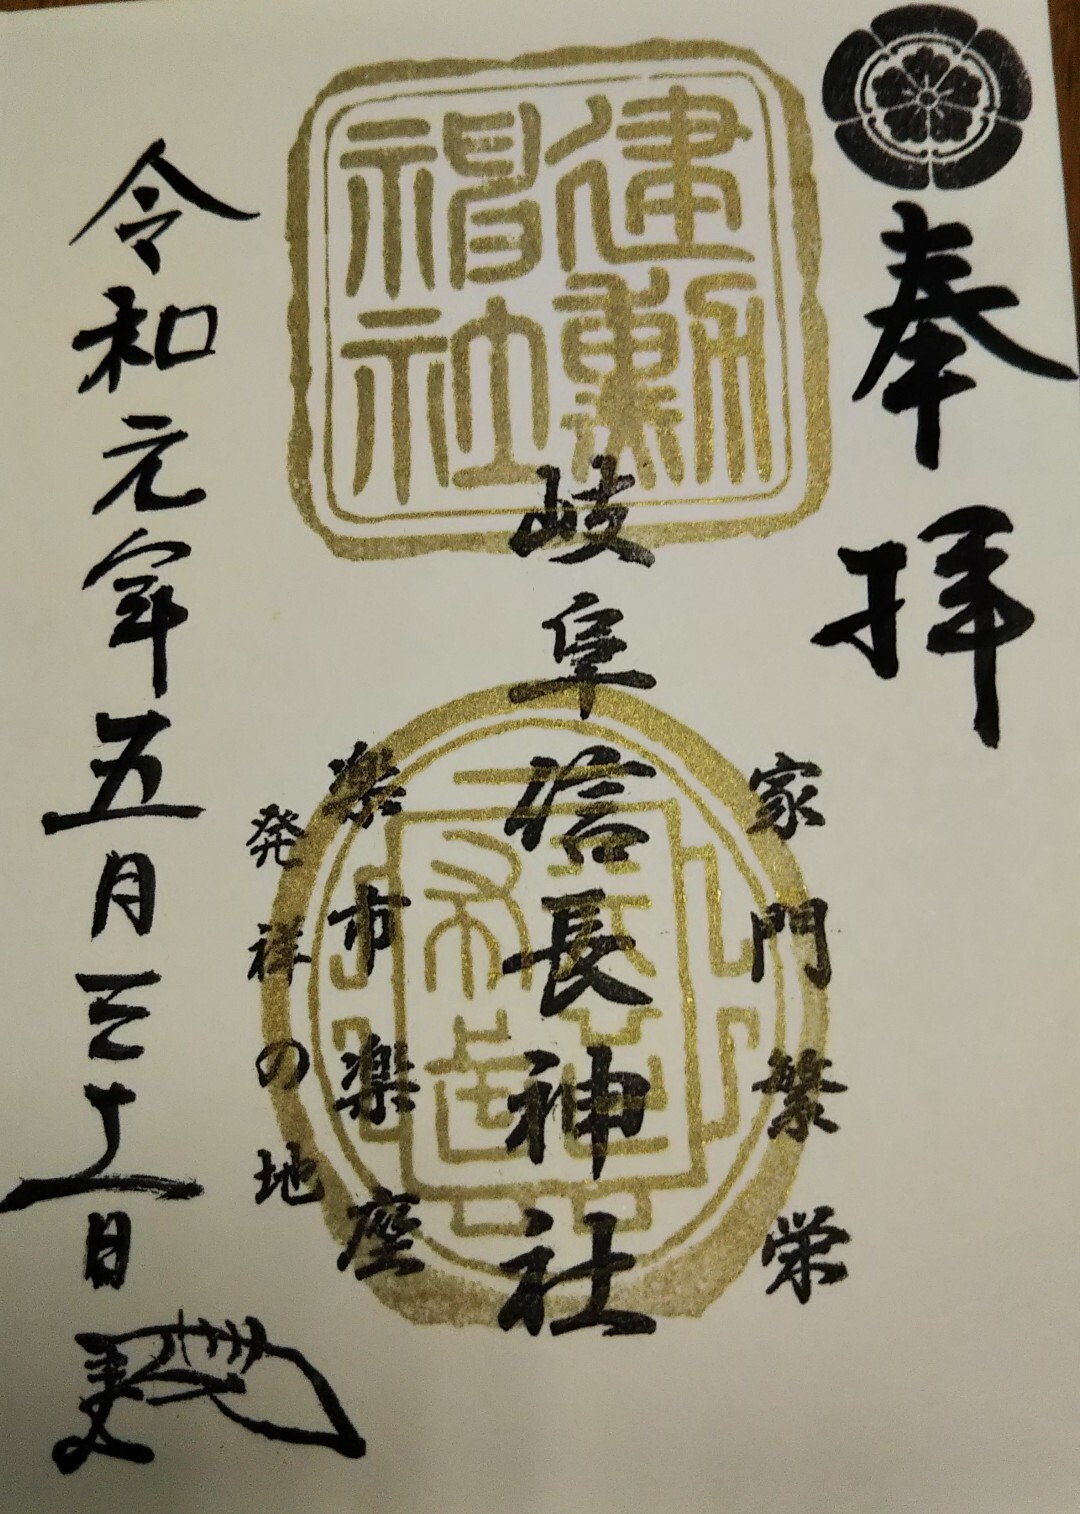 奉拝
家門繁栄
建勲
神社
岐阜信長神社
楽市楽座
発祥の地
令和元年五月三十一日